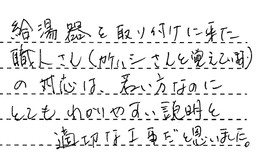 給湯器を取り付けに来た
職人さん(ホハシさんと覚えている)
の対応は、若い方なのに
とてもわかりやすい説明を
適切な工事だと思いました。